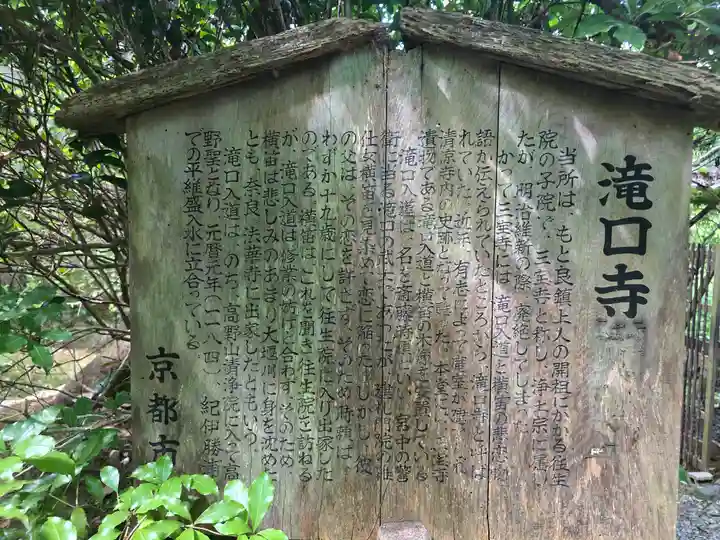 滝口寺
当所は、もと良鎮上人の開祖にかかる往生
院の子院で、三宝寺と称し、浄土宗に属し
たが、明治維新の際、廃絶してしまった。
かつて三宝寺には、滝口入道と横笛の悲恋物
語が伝えられていたところから、滝口寺と呼ば
れていた。近年、有志によって庵室が建
清凉寺内の史跡となって
遺物である滝口入道と横笛の木像を安置している。
滝口入道は、名を斎藤時頼といい、宮中の警
衛に当る滝口の武士であったが、建礼門院の雑
仕女横笛を見そめ、恋に陥った。しかし、彼
の父は、その恋を許さず、そのため時頼は、
わずか十九歳にして往生院に入り出家した
のである。横笛はこれを聞き往生院を訪ねる
が、滝口入道は修業の妨げと会わず、そのため
横笛は悲しみのあまり大堰川に身を沈めた
とも、奈良法華寺に出家したともいう。
滝口入道は、のち、高野山清浄院に入って高
野聖となり、元暦元年(一一八四)、紀伊勝浦
での平維盛入水に立合っている。
京都市